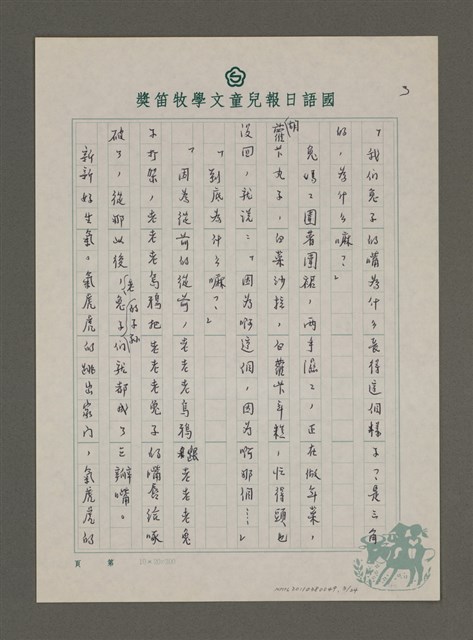 國語日報兒童文學牧笛獎
3
「我們兔子的嘴為什么長得這個樣子？是三角
的，為什么嘛？」
兔媽媽圍著圍裙，兩手濕濕，正在做年菜，
胡蘿卜丸子，白菜沙拉，白蘿卜年糕，忙得頭也
沒回，就說：「因為啊這個，因為啊那個……」
「到底為什么嘛？」
「因為從前的從前，老老老烏鴉跟老老老兔
子打架，老老老烏鴉把老老老兔子的嘴唇給啄
破了，從那以後，老兔子的子孫們就都成了三瓣嘴。
新新好生氣。氣虎虎的跳出家門，氣虎虎的
第 頁